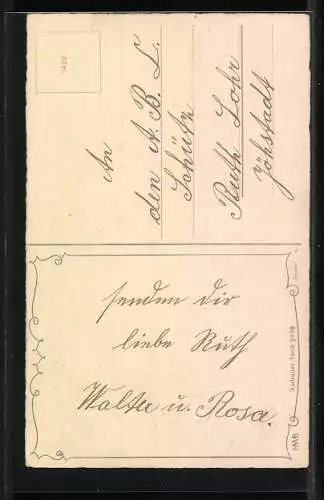 An
den A. B. C.
Schütz
Ruth Lohr
Jöhstadt
senden Dir
liebe Ruth
Walter u. Rosa.
HWB
Serie 3778